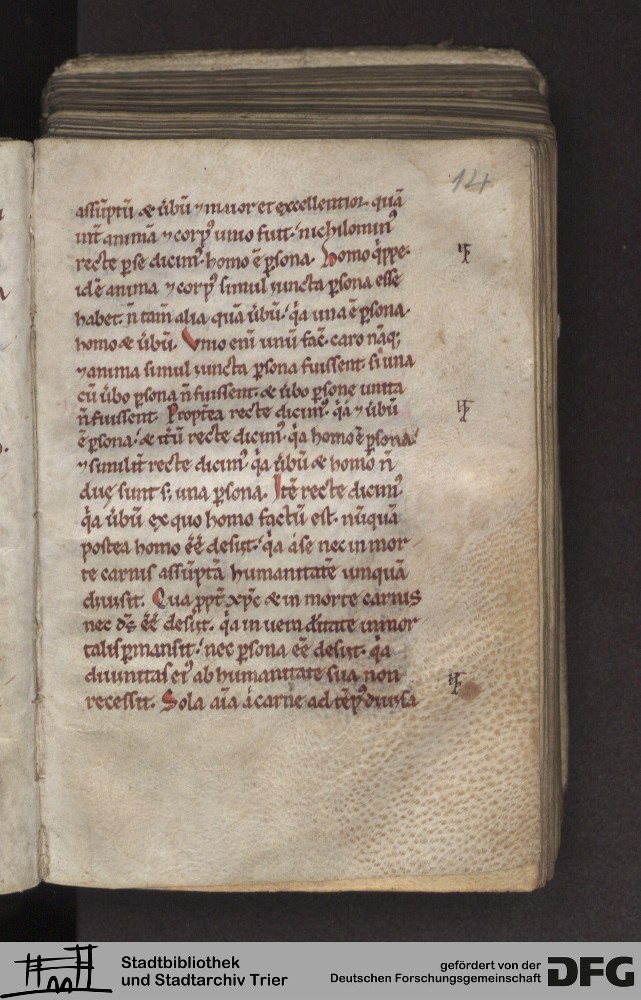 14
assūptū & ůbū ⁊ maior et excellentior quā
int̄ animā ⁊ corpꝰ unio fuit. nichilominꝰ
recte p̱ se dicimꝰ. homo ē p̱sona. homo q̇ppe.
id ē anima ⁊ corpꝰ simul iuncta p̱sona esse
habet. n̄ tam̄ alia quā ůbū. q̇a una ē p̱sona
homo & ůbū. Vnio eni᷒ unū fac̄. caro nāq;
⁊ anima simul iuncta p̱sona fuissent. si una
cū ůbo p̱sona n̄ fuissent. & ůbo p̱sone unita
n̄ fuissent. Propt̄ea recte dicimꝰ. q̇a ⁊ ůbū
ē p̱sona. & it̄ū recte dicimꝰ. q̇a homo ē p̱sona.
⁊ similit̄ recte dicimꝰ q̇a ůbū & homo n̄
duę sunt s; una p̱sona. Itē recte dicimꝰ
q̇a ůbū ex quo homo factū est. nūquā
postea homo ēē desiit. q̇a a se nec in mor
te carnis assūptā humanitatē unquā
diuisit. Qua p̱pt̄ xp̄c & in morte carnis
nec dš ēē desiit. q̇a in uera d̄itate inmor
talis p̱mansit. nec p̱sona eē desiit. q̇a
diuinitas eiꝰ ab humanitate sua non
recessit. Sola aīa a carne ad tēpꝰ diuisa
Stadtbibliothek
und Stadtarchiv Trier
gefördert von der
Deutschen Forschungsgemeinschaft
DFG